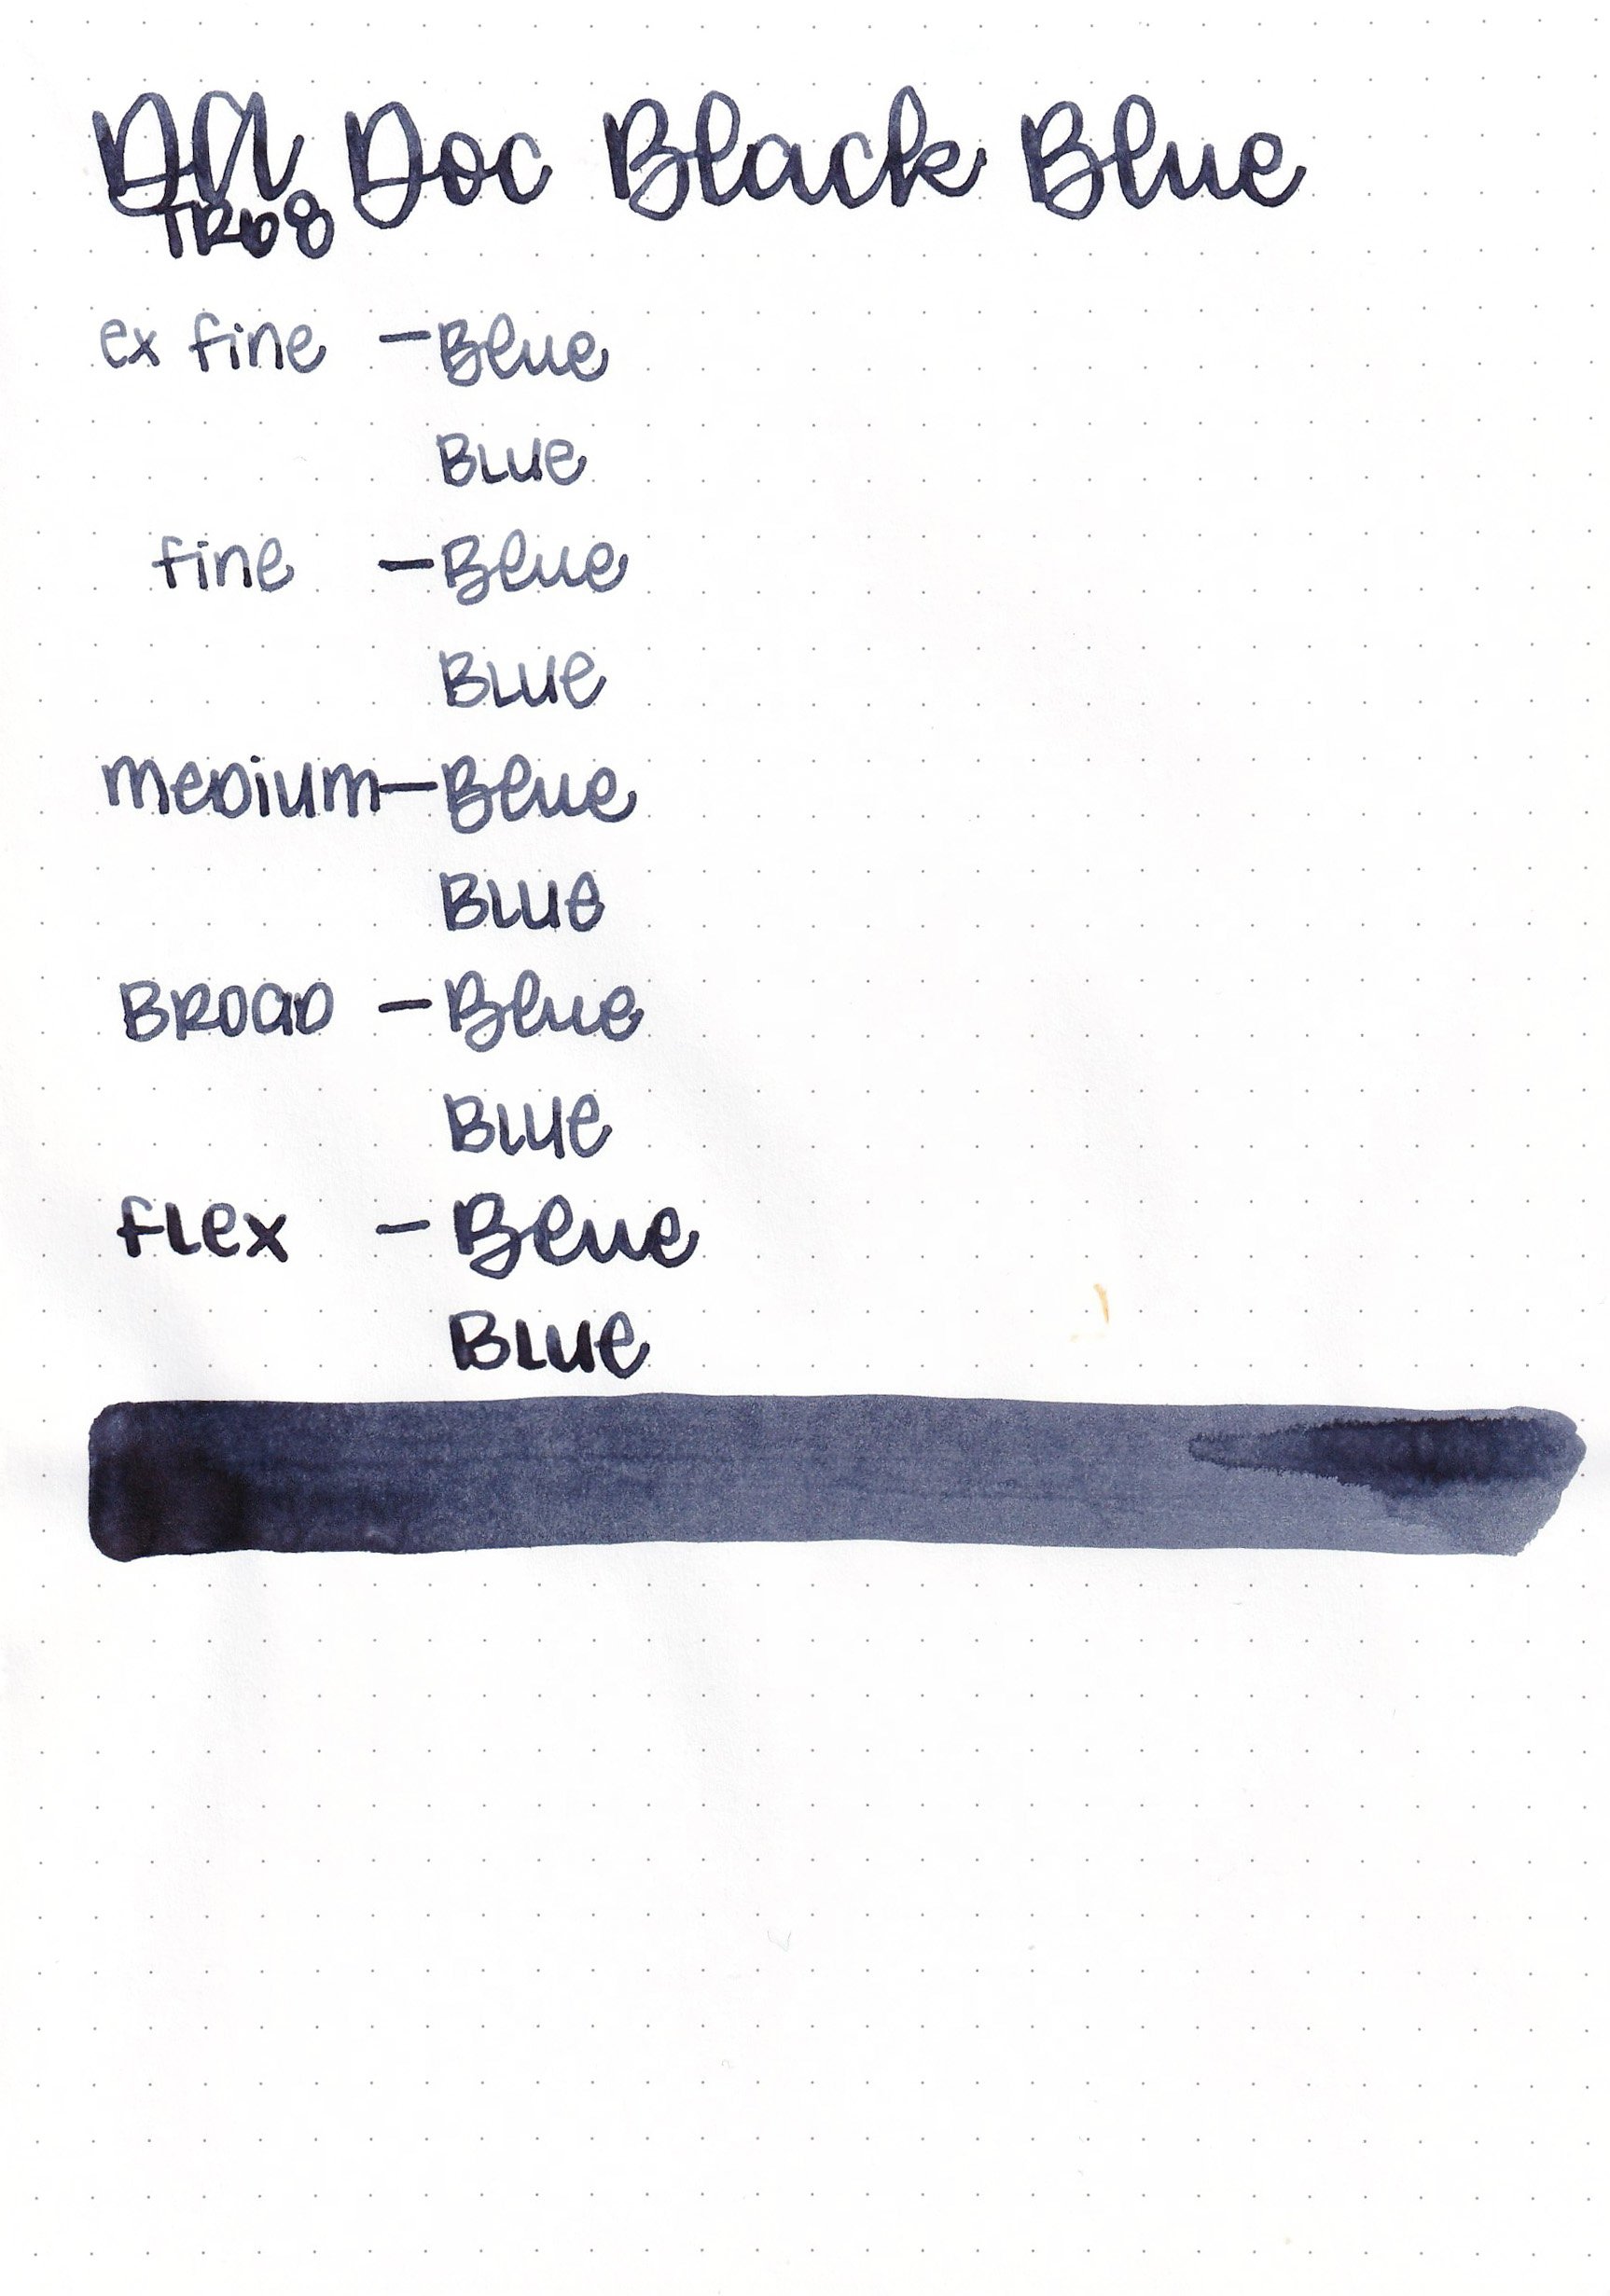 DA Doc Black Blue
TR68
ex fine – Blue
BLUe
fine – Blue
BLUe
meDium – Blue
BLUe
BROAD – Blue
BLUe
fLex – Blue
BLUe